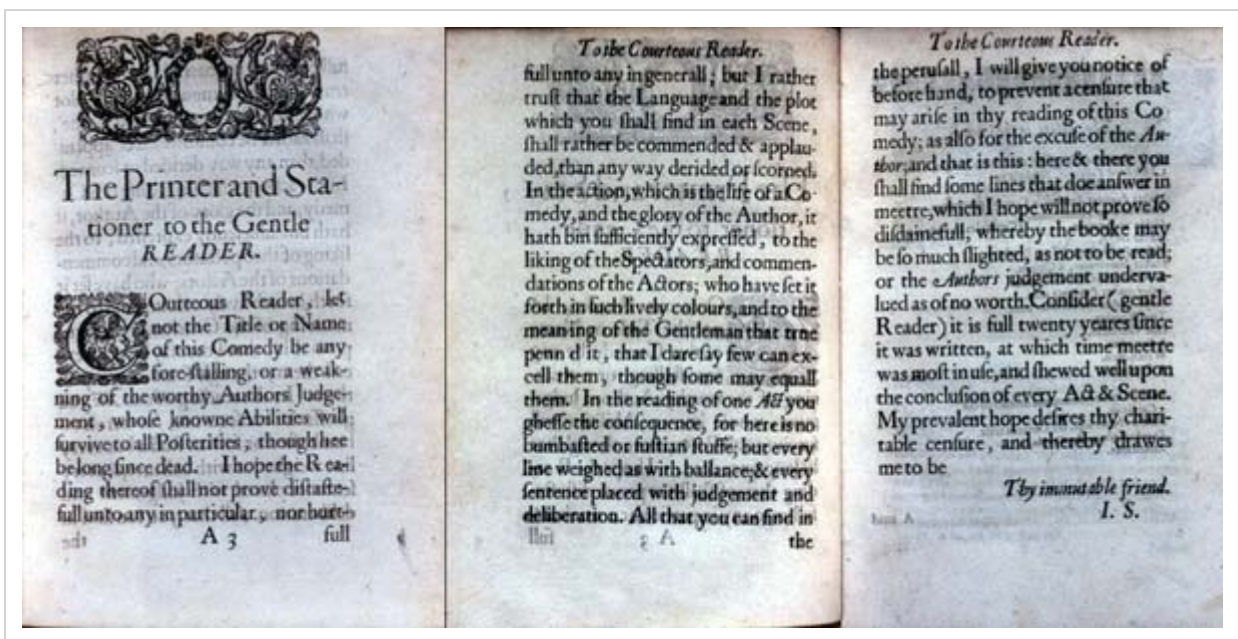 The Printer and Sta-
tioner to the Gentle
READER.
COurteous Reader, let
not the Title or Name
of this Comedy be any
fore-ſtalling, or a weak-
ning of the worthy Authors Judge-
ment, whoſe knowne Abilities will
ſurvive to all Poſterities, though hee
be long ſince dead. I hope the Rea-
ding thereof ſhall not prove diſtaſte-
full unto any in particular, nor hurt-
A 3 full
To the Courteous Reader.
full unto any in generall; but I rather
truſt that the Language and the plot
which you ſhall find in each Scene,
ſhall rather be commended & applau-
ded, than any way derided or ſcorned.
In the action, which is the life of a Co-
medy, and the glory of the Author, it
hath bin ſufficiently expreſſed, to the
liking of the Spectators, and commen-
dations of the Actors; who have ſet it
forth in ſuch lively colours, and to the
meaning of the Gentleman that true
penn d it, that I dare ſay few can ex-
cell them, though ſome may equall
them. In the reading of one Act you
gheſſe the conſequence, for here is no
bumbaſted or fuſtian ſtuffe; but every
line weighed as with ballance, & every
ſentence placed with judgement and
deliberation. All that you can find in
the
To the Courteous Reader.
the peruſall, I will give you notice of
before hand, to prevent a cenſure that
may ariſe in thy reading of this Co
medy; as alſo for the excuſe of the Au-
thor; and that is this: here & there you
ſhall find ſome lines that doe anſwer in
meetre, which I hope will not prove ſo
diſdainefull, whereby the booke may
be ſo much ſlighted, as not to be read;
or the Authors judgement underva-
lued as of no worth. Conſider (gentle
Reader) it is full twenty yeares ſince
it was written, at which time meetre
was moſt in uſe, and ſhewed well upon
the concluſion of every Act & Scene.
My prevalent hope deſires thy chari-
table cenſure, and thereby drawes
me to be
Thy immutable friend.
I. S.